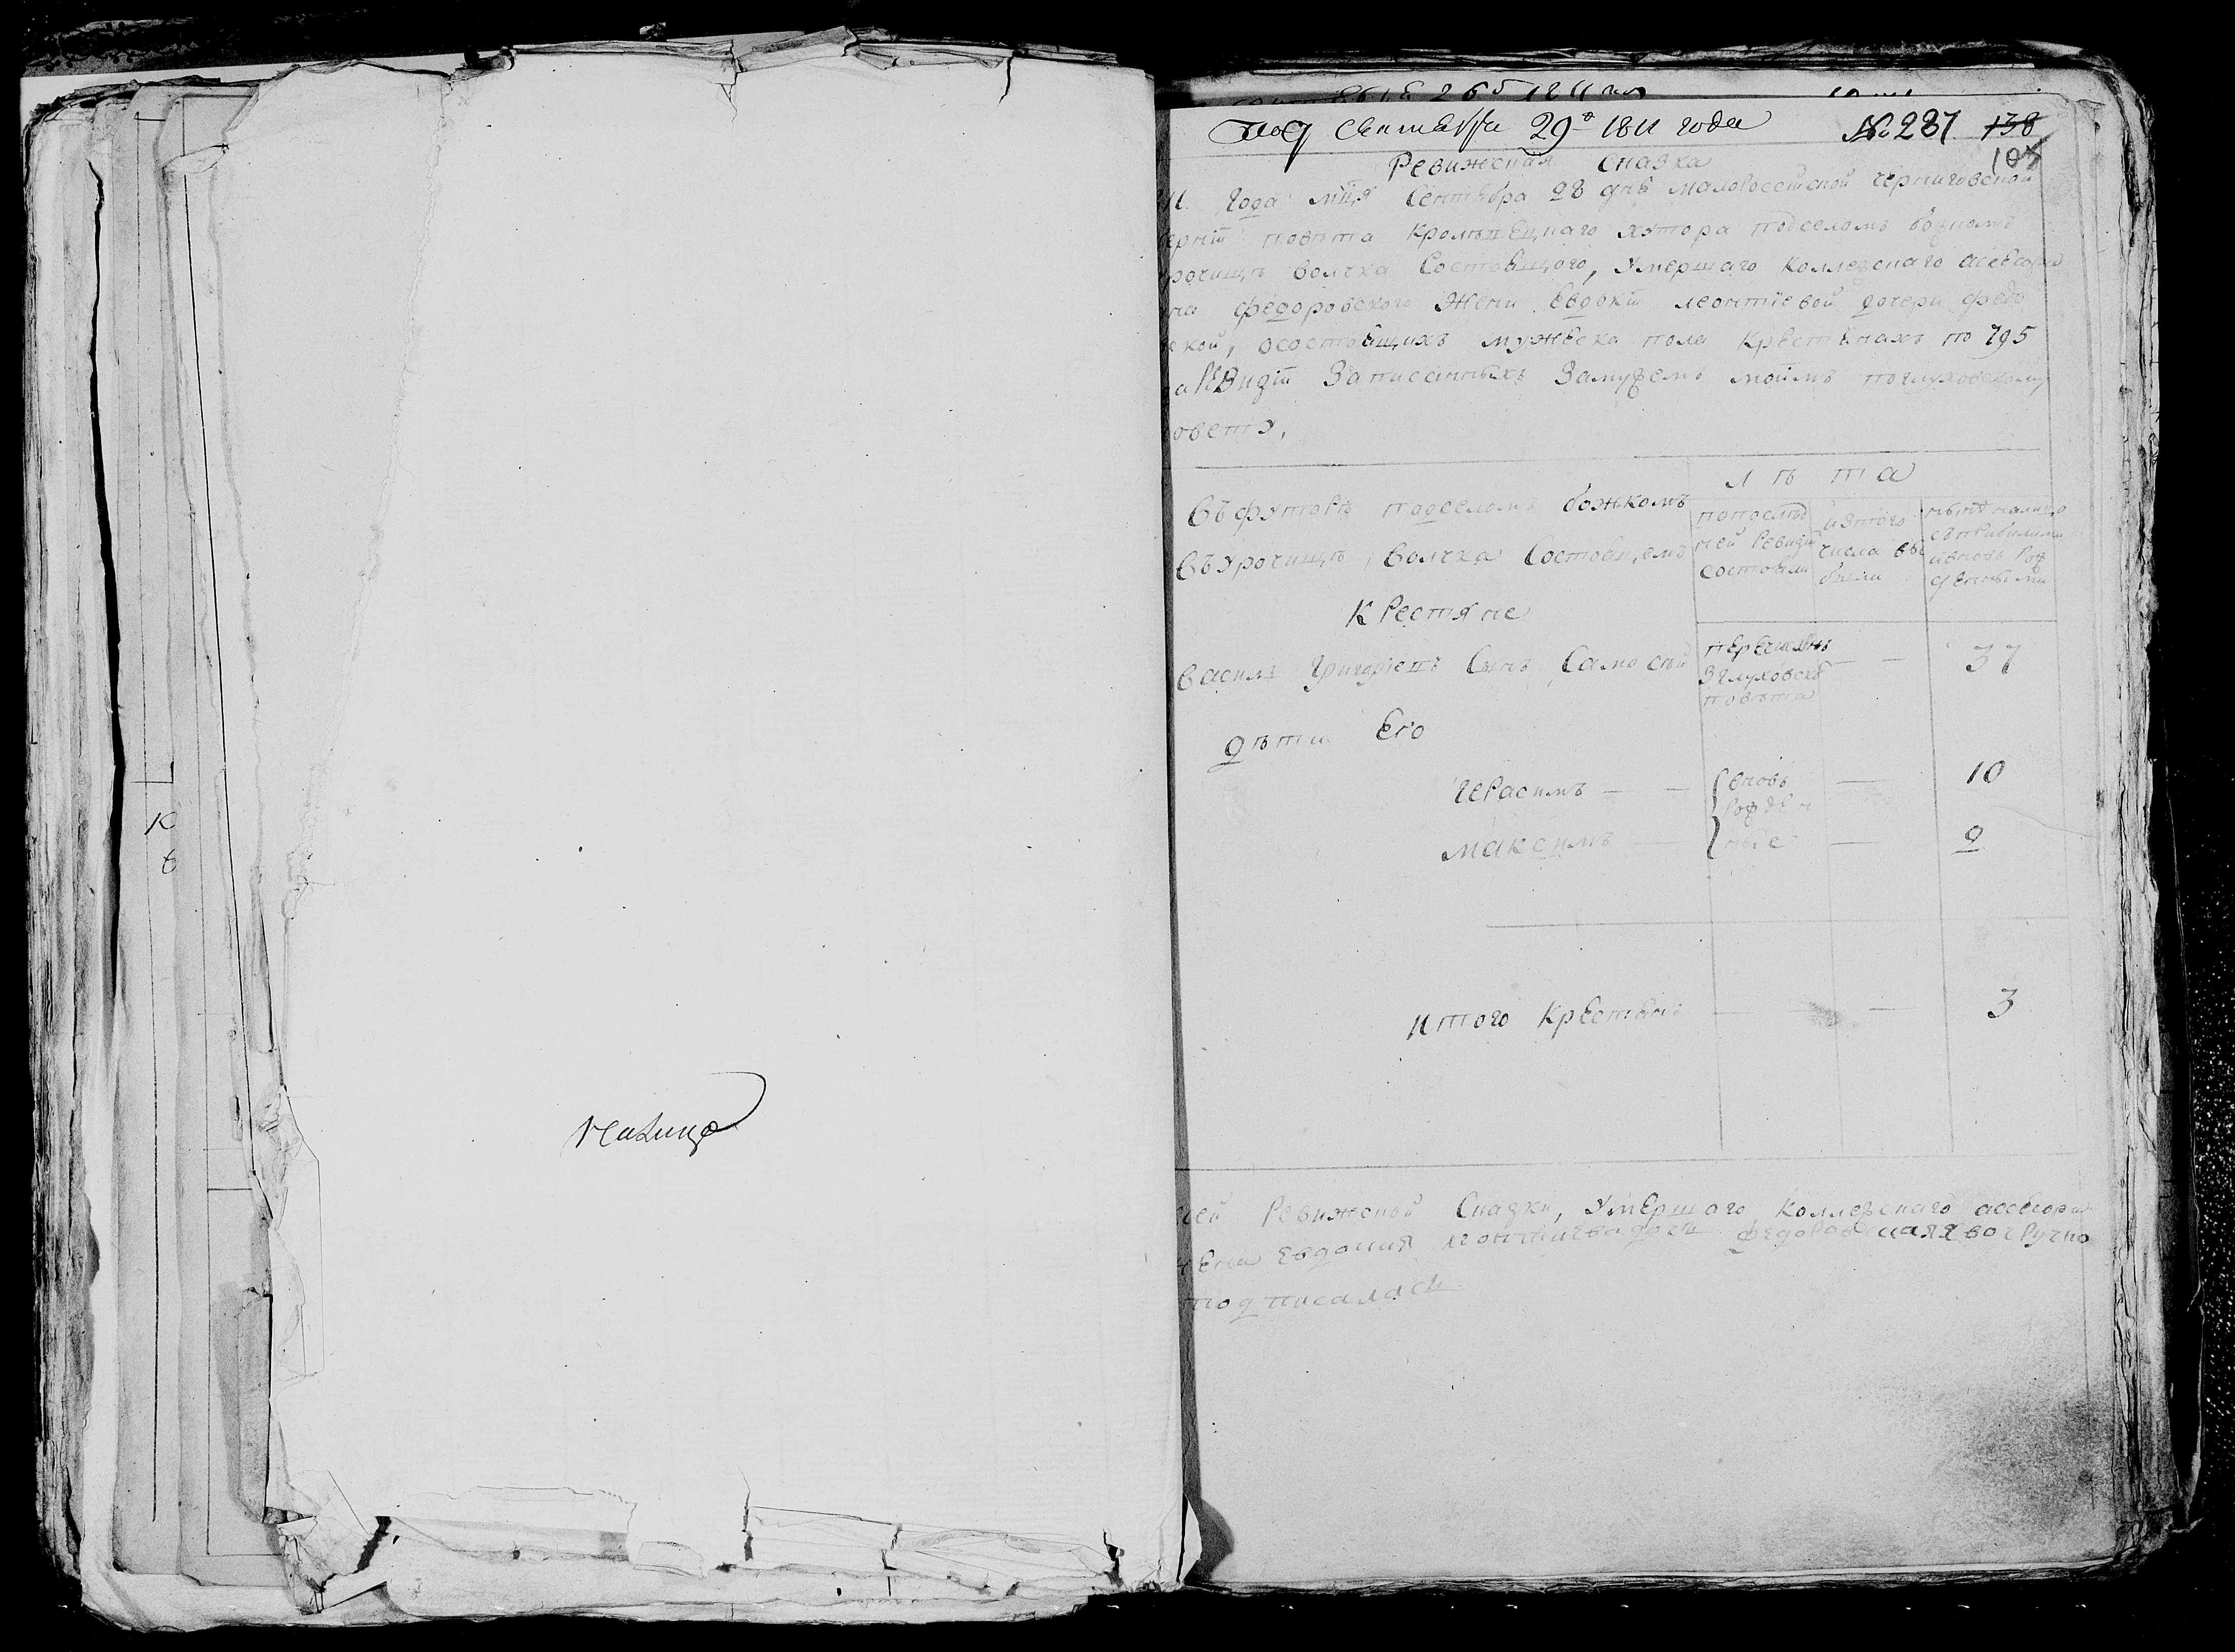 К
в
под Сентября 29го 1811 года №237 138
103
Ревижская сказка
11 года мця Сентября 28 днѣ малоросейской черниговской
ерніи повѣта кролѣвецкаго хутора подселомъ божкомъ
рочищѣ волчка Состоящого, умершаго коллежскаго асесора
на федоровского Жени Евдокіи леонтіевой дочери федо
ской, осостоящихъ мужеска пола крестянахъ по 795
ревизіи Записанныхъ Замужемъ моимъ поглуховскому
овету,
Въ футорѣ подселомъ божкомъ
въ урочищѣ волчка Состоящемъ
лѣта
попослѣд
ней Ревизіи
состояли
изтого
числа вы
были
нынѣ налицо
сприбилими
ивновь Рож
денными
крестяне
василь григоріевъ Синъ Самоскій
зглуховско
повѣта
— — 37
дѣти Его
герасимъ — — вновь — 10
рожден
максимъ — ные — 2
итого крестянъ — — — 3
сей Ревижской Сказки, умершаго коллежскаго асесора
жена Евдокия федоровская своеручно
подписалась